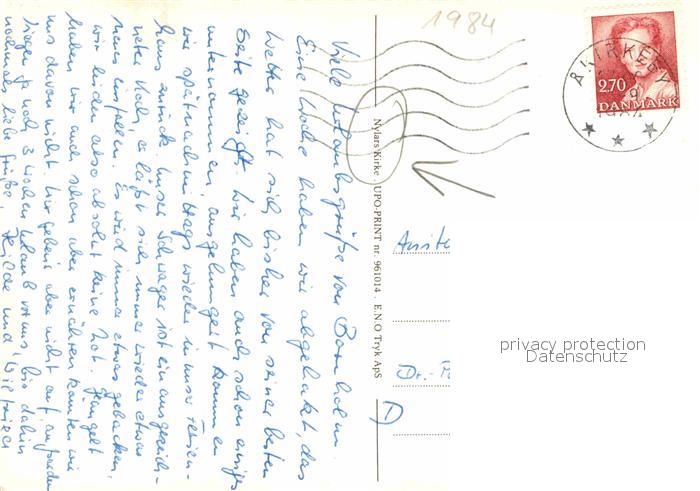 Viele Urlaubsgrüße von Bornholm.
Eine Woche haben wir abgehakt, das
Wetter hat sich bisher von seiner besten
Seite gezeigt. Wir haben auch schon einiges
unternommen, ausgehungert kommen
wir spätnachmittags wieder in unser Ferien-
haus zurück. Unser Schwager ist ein ausgezeich-
neter Koch, er läßt sich immer wieder etwas
neues einfallen. Es wird immer etwas gebacken,
wir leiden also absolut keine Not. geangelt
haben wir auch schon aber ernähren könnten wir
uns davon nicht. hier gefällt aber nicht auf,
liegen ja noch 3 Wochen Urlaub vor uns, bis dahin
nochmals liebe Grüße, und
Nylars Kirke . UPO-PRINT nr. 961014 . E.N.O Tryk ApS
1984
ÅKIRKEBY
2.70
DANMARK
Dr.-
D
privacy protection
Datenschutz